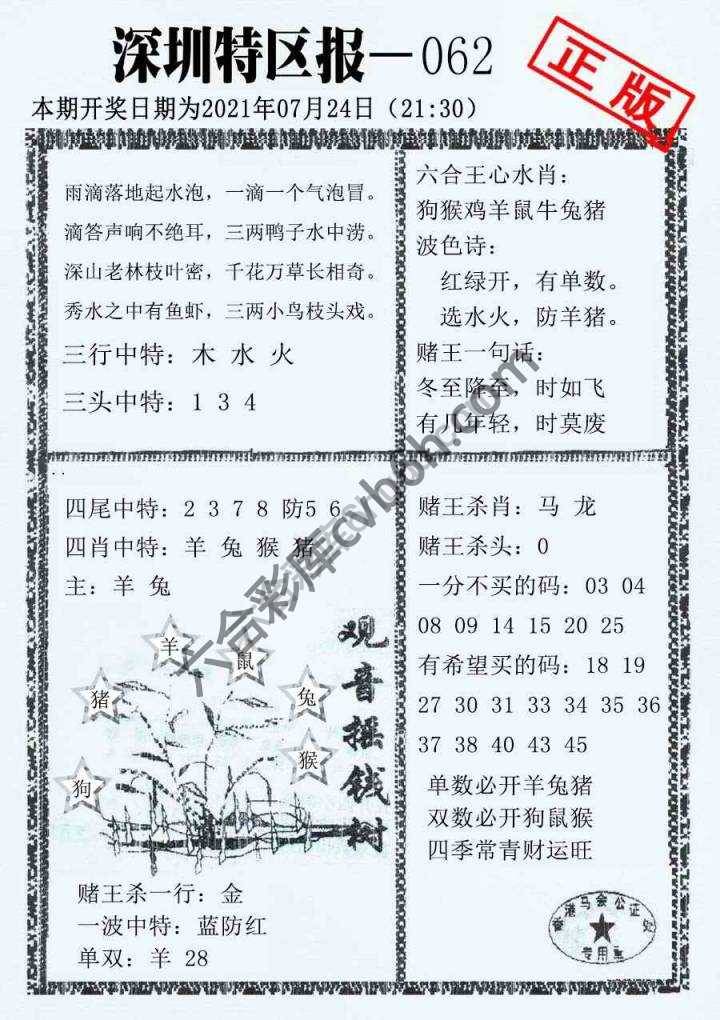 深圳特区报—062
正版
本期开奖日期为2021年07月24日（21:30）
雨滴落地起水泡，一滴一个气泡冒。
滴答声响不绝耳，三两鸭子水中涝。
深山老林枝叶密，千花万草长相奇。
秀水之中有鱼虾，三两小鸟枝头戏。
三行中特：木 水 火
三头中特：1 3 4
六合王心水肖：
狗猴鸡羊鼠牛兔猪
波色诗：
红绿开，有单数。
选水火，防羊猪。
赌王一句话：
冬至降至，时如飞
有几年轻，时莫废
四尾中特：2 3 7 8 防5 6
四肖中特：羊 兔 猴 猪
主：羊 兔
羊
鼠
猪
兔
猴
狗
观音摇钱树
赌王杀一行：金
一波中特：蓝防红
单双：羊 28
赌王杀肖：马 龙
赌王杀头：0
一分不买的码：03 04
08 09 14 15 20 25
有希望买的码：18 19
27 30 31 33 34 35 36
37 38 40 43 45
单数必开羊兔猪
双数必开狗鼠猴
四季常青财运旺
香港马会公证处
专用章
六合彩库cvb6h.com